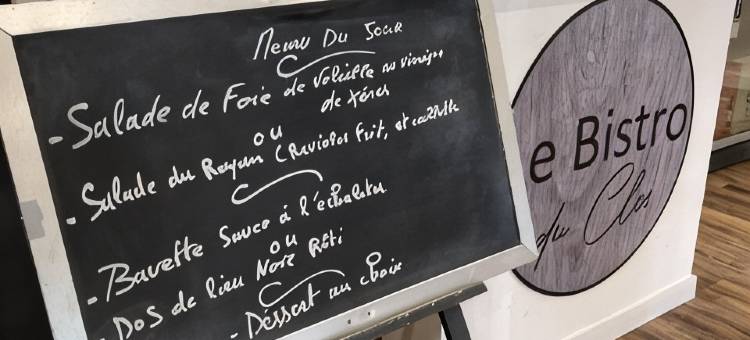 Menu Du Jour
- Salade de Foie de Volaille au vinaigre
de Xérès
ou
- Salade du Royan (Ravioles Frit, et
- Bavette Sauce à l'échalotes
ou
- Dos de lieu Noir Rôti
- Dessert au choix
e Bistro
du Clos